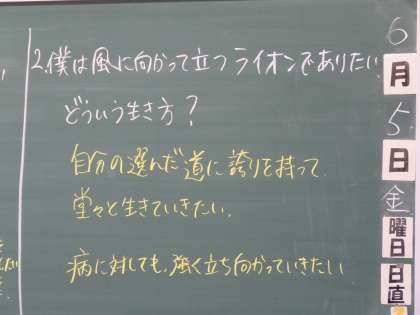 2.僕は風に向かって立つライオンでありたい
どういう生き方?
自分の選んだ道に誇りを持って
堂々と生きていきたい.
病に対しても,強く立ち向かっていきたい
6
月
5
日
金
曜日
日直